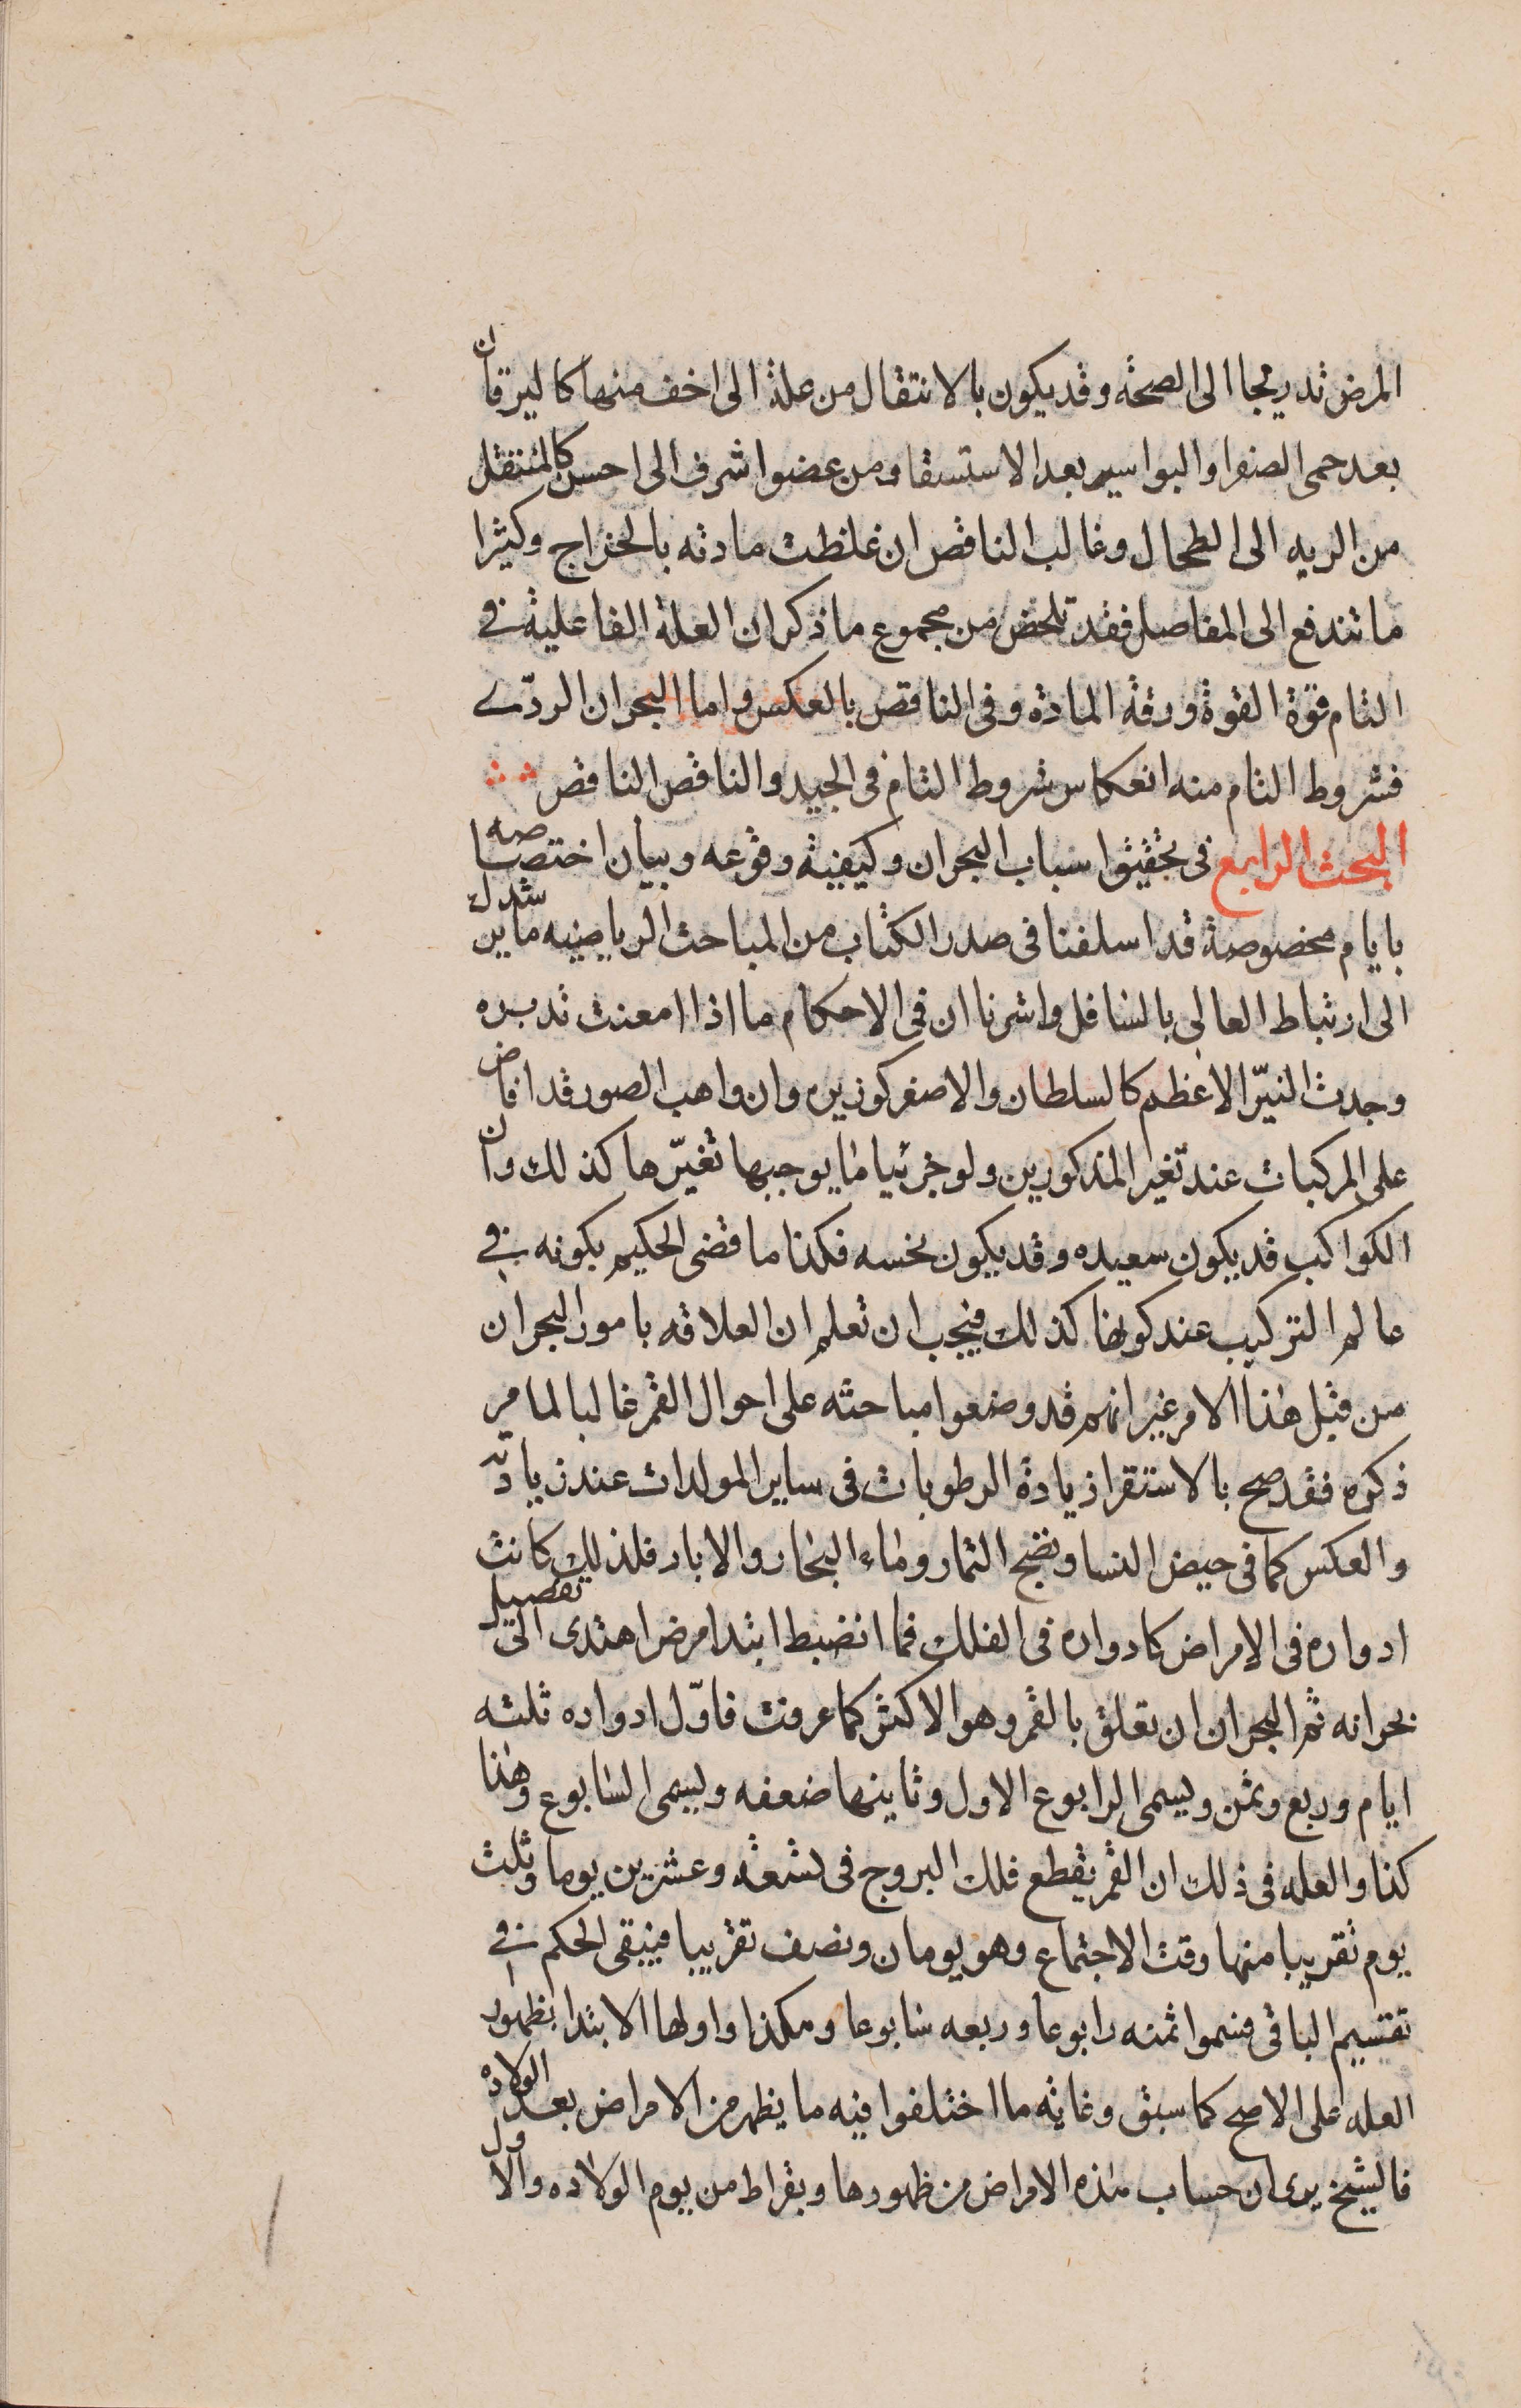 المرض تدريجا الى الصحة وقد يكون بالانتقال من علة الى اخف منها كاليرقان
بعد حمى الصفرا والبواسير بعد الاستسقا ومن عضو اشرف الى احسن كالمنتقل
من الريه الى الطحال وغالب الناقص ان غلظت مادته بالخراج وكثيرا
ما تندفع الى المفاصل فقد تلخص من مجموع ما ذكر ان العلة الفاعلية في
التام قوة القوة ورقة المادة وفى الناقص بالعكس واما البحران الردّى
فشروط التام منه انعكاس شروط التام فى الجيد والناقص الناقص
البحث الرابع فى تحقيق اسباب البحران وكيفية وقوعه وبيان اختصاصه
بايام مخصوصة قد اسلفنا فى صدر الكتاب من المباحث الرياضيه ما يرشدك
الى ارتباط العالى بالسافل واشرنا ان فى الاحكام ما اذا امعنت تدبره
وجدت النيّر الاعظم كالسلطان والاصغر كوزيره وان واهب الصور قد افاض
على المركبات عند تغير المذكورين ولو جزئيا ما يوجبها تغيّرها كذلك وان
الكواكب قد يكون سعيده وقد يكون نحسه فكذا ما قضى الحكيم بكونه في
عالم التركيب عند كونها كذلك فيجب ان تعلم ان العلاقه بامور البحران
من قبل هذا الامر غير انهم قد وضعوا مباحثه على احوال القمر غالبا لما مر
ذكره فقد صح بالاستقرا زيادة الرطوبات فى ساير المولدات عند زيادته
والعكس كما فى حيض النسا ونضج الثمار وماء البحار والابار فلذلك كانت
ادواره فى الامراض كادواره فى الفلك فما انضبط ابتدا مرض اهتدى الى تفصيل
بحرانه ثم البحران ان تعلق بالقمر وهو الاكثر كما عرفت فاوّل ادواره ثلثه
ايام وربع وثمن ويسمى الرابوع الاول وثانيها ضعفه ويسمى السابوع وهذا
كذا والعله فى ذلك ان القمر يقطع فلك البروج فى تسعة وعشرين يوما وثلث
يوم تقريبا منها وقت الاجتماع وهو يومان ونصف تقريبا فيبقى الحكم في
تقسيم الباقى فسموا ثمنه رابوعا وربعه سابوعا وهكذا واولها الابتدا بظهور
العله على الاصح كما سبق وغاية ما اختلفوا فيه ما يظهر من الامراض بعد الولاده
فالشيخ يرى ان حساب هذه الامراض من ظهورها وبقراط من يوم الولاده والاول